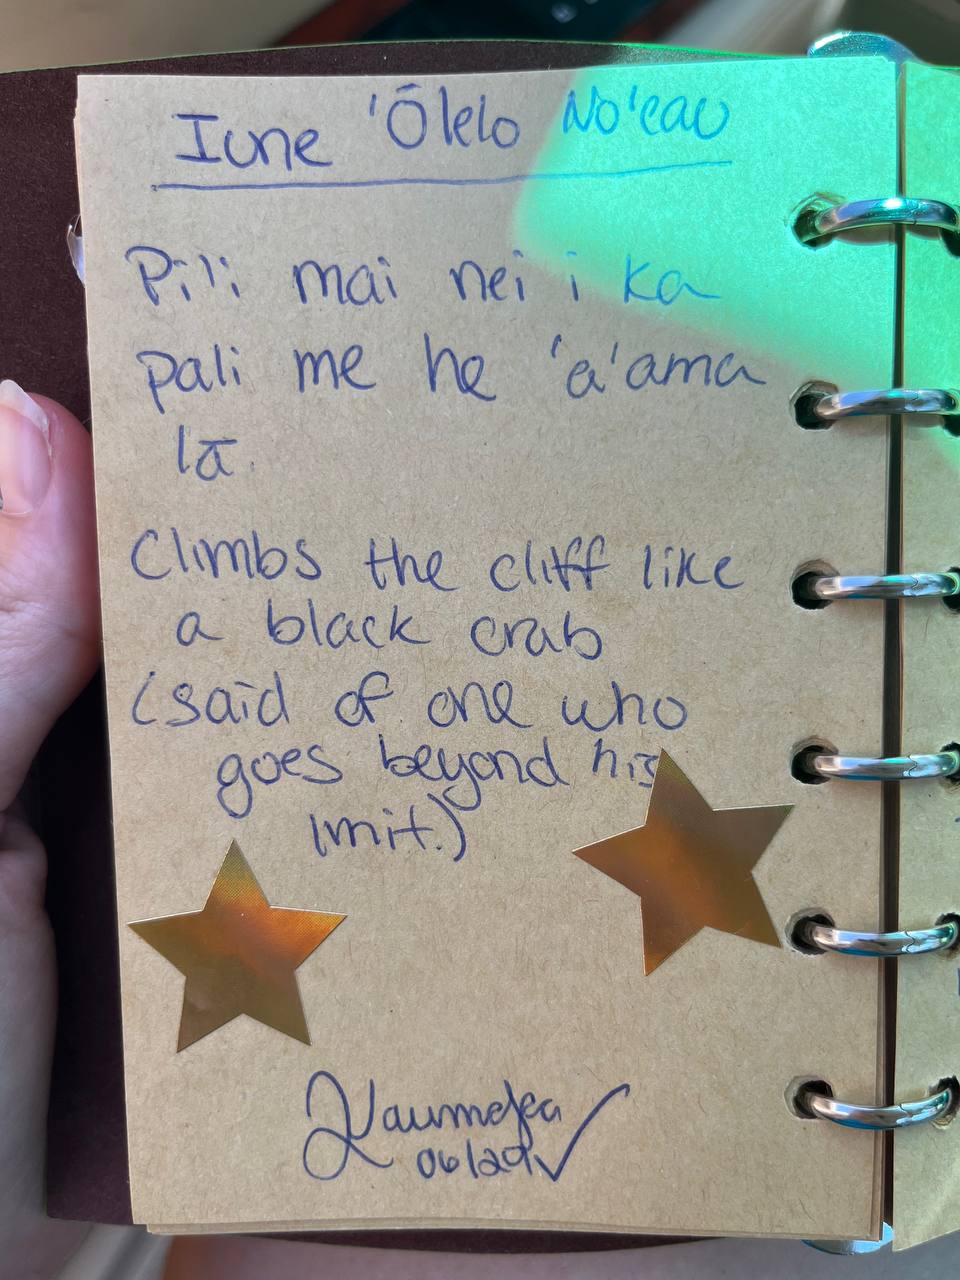 Iune 'Ōlelo No'eau
Pili mai nei i ka
pali me he 'a'ama
lā.
Climbs the cliff like
a black crab
(said of one who
goes beyond his
lmit.)
06/29